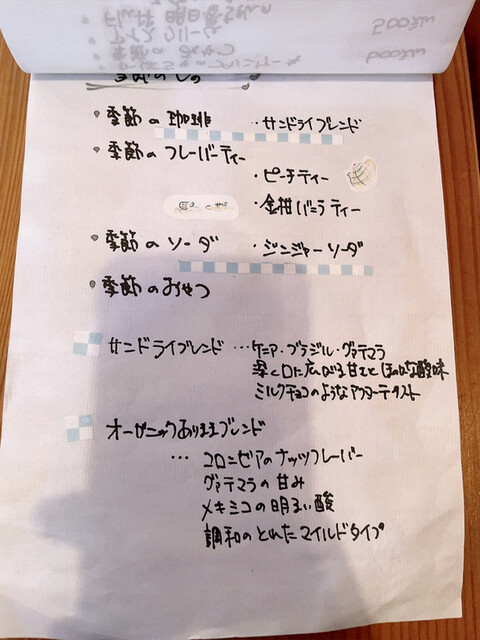 季節の珈琲 ・サンドライブレンド
季節のフレーバーティー
・ピーチティー
・金柑バニラティー
季節のソーダ ・ジンジャーソーダ
季節のおやつ
サンドライブレンド …ケニア・ブラジル・グァテマラ
深く口に広がる甘さとほのかな酸味
ミルクチョコのようなアフターテイスト
オーガニックありままブレンド
… コロンビアのナッツフレーバー
グァテマラの甘み
メキシコの明るい酸
調和のとれたマイルドタイプ